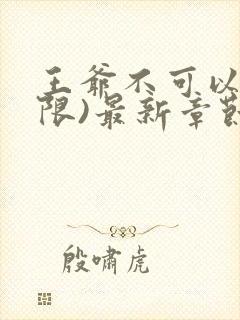 王爷不可以
限)最新章节
殷啸虎